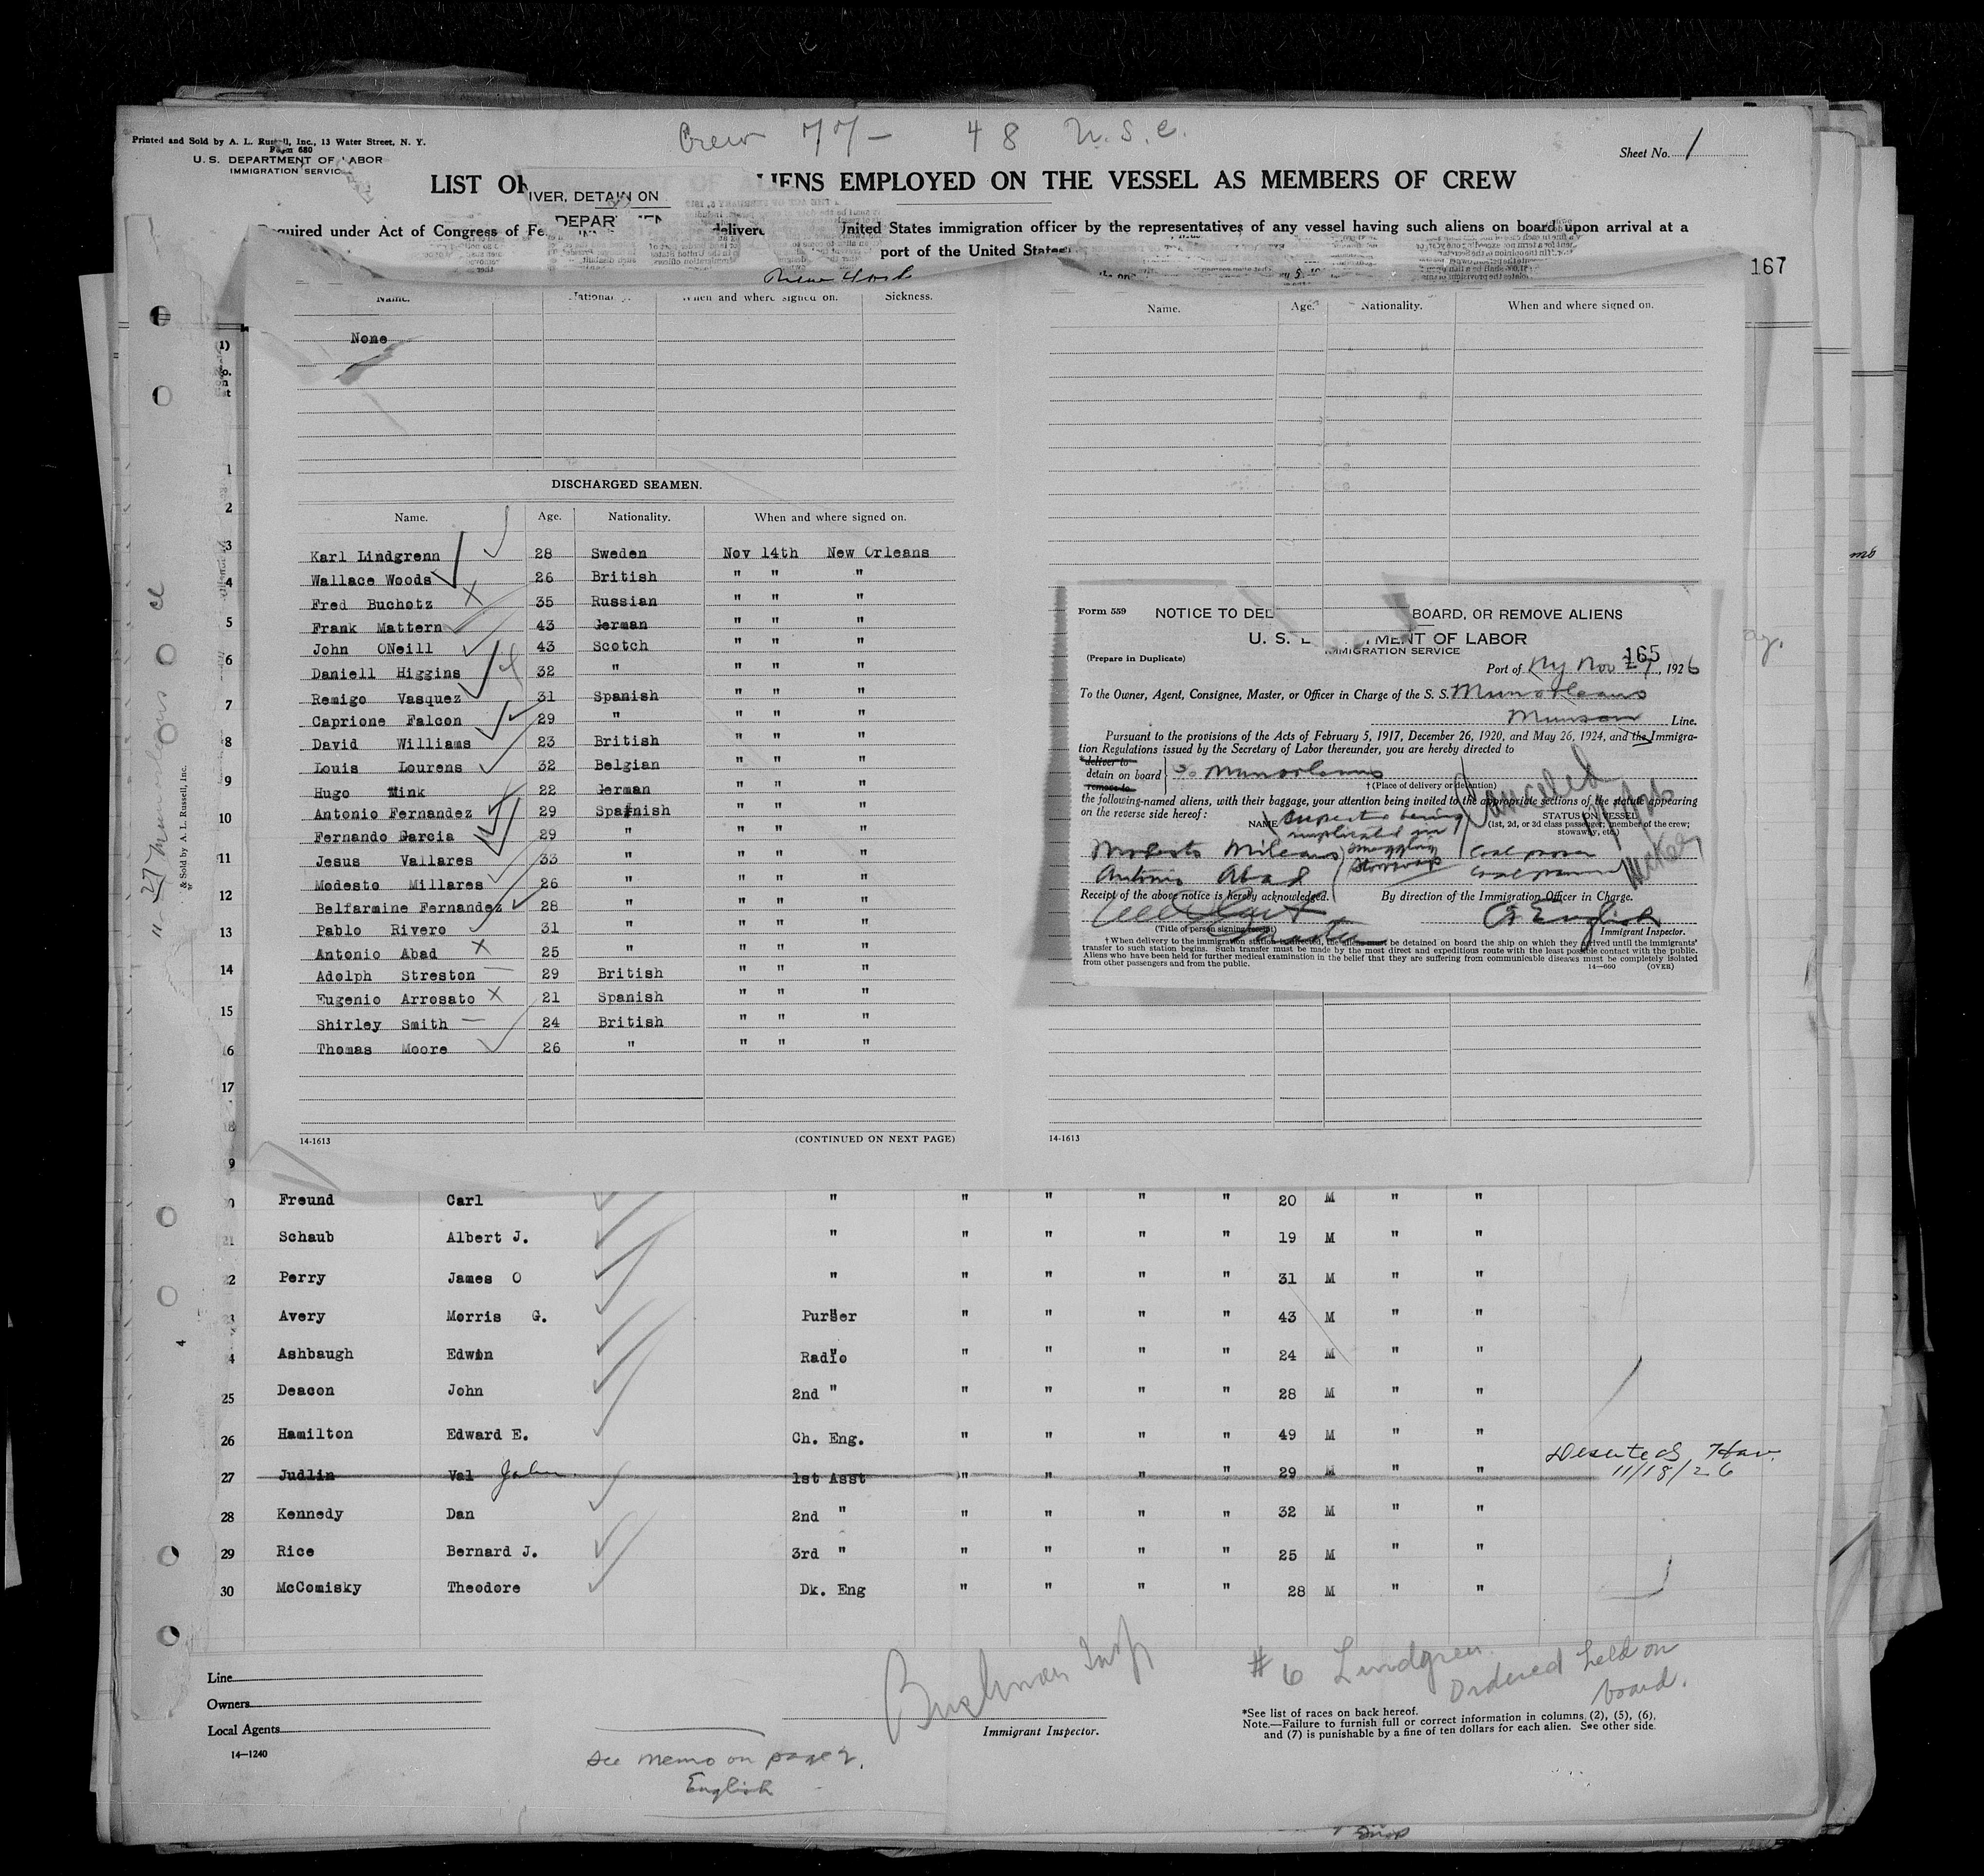 Crew 77 - 48 U.S.C.
Printed and Sold by A. L. Russell, Inc., 13 Water Street, N. Y.
Form 680
U. S. DEPARTMENT OF LABOR
IMMIGRATION SERVICE
Sheet No. 1
LIST OF
IVER, DETAIN ON
LIENS EMPLOYED ON THE VESSEL AS MEMBERS OF CREW
DEPAR
Required under Act of Congress of Fe delivere United States immigration officer by the representatives of any vessel having such aliens on board upon arrival at a
port of the United States
New York
167
Name. Nationality. When and where signed on. Sickness.
None
DISCHARGED SEAMEN.
Name. Age. Nationality. When and where signed on.
Karl Lindgrenn 28 Sweden Nov 14th New Orleans
Wallace Woods 26 British " " "
Fred Buchotz 35 Russian " " "
Frank Mattern 43 German " " "
John ONeill 43 Scotch " " "
Daniell Higgins 32 " " " "
Remigo Vasquez 31 Spanish " " "
Caprione Falcon 29 " " " "
David Williams 23 British " " "
Louis Lourens 32 Belgian " " "
Hugo Wink 22 German " " "
Antonio Fernandez 29 Spanish " " "
Fernando Garcia 29 " " " "
Jesus Vallares 33 " " " "
Modesto Millares 26 " " " "
Belfarmine Fernandez 28 " " " "
Pablo Rivero 31 " " " "
Antonio Abad 25 " " " "
Adolph Streston 29 British " " "
Eugenio Arrosato 21 Spanish " " "
Shirley Smith 24 British " " "
Thomas Moore 26 " " " "
14-1613 (CONTINUED ON NEXT PAGE)
Name. Age. Nationality. When and where signed on.
Form 559 NOTICE TO DEL BOARD, OR REMOVE ALIENS
U. S. MENT OF LABOR
IMMIGRATION SERVICE
(Prepare in Duplicate)
165
Port of Ny Nov 27, 1926
To the Owner, Agent, Consignee, Master, or Officer in Charge of the S. S. Munorleans
Munson Line.
Pursuant to the provisions of the Acts of February 5, 1917, December 26, 1920, and May 26, 1924, and the Immigra-
tion Regulations issued by the Secretary of Labor thereunder, you are hereby directed to
*deliver to
detain on board Munorleans
remove to
†(Place of delivery or detention)
the following-named aliens, with their baggage, your attention being invited to the appropriate sections of the statute appearing
on the reverse side hereof:
NAME STATUS ON VESSEL
(1st, 2d, or 3d class passenger; member of the crew;
stowaway, etc.)
Suspects being
implicated in
smuggling
stowaways
Cancelled
McKey
Modesto Milears Coal passer
Antonio Abad Coal passer
Receipt of the above notice is hereby acknowledged. By direction of the Immigration Officer in Charge.
English
Master
(Title of person signing receipt) Immigrant Inspector.
†When delivery to the immigration station is directed, the aliens must be detained on board the ship on which they arrived until the immigrants'
transfer to such station begins. Such transfer must be made by the most direct and expeditious route with the least possible contact with the public.
Aliens who have been held for further medical examination in the belief that they are suffering from communicable diseases must be completely isolated
from other passengers and from the public.
14—660 (OVER)
14-1613
& Sold by A. L. Russell, Inc.
1
2
3
4
5
6
7
8
9
10
11
12
13
14
15
16
17
18
9
20 Freund Carl " " " " " 20 M " "
21 Schaub Albert J. " " " " " 19 M " "
22 Perry James O " " " " " 31 M " "
23 Avery Morris G. Purser " " " " 43 M " "
24 Ashbaugh Edwin Radio " " " " 24 M " "
25 Deacon John 2nd " " " " " 28 M " "
26 Hamilton Edward E. Ch. Eng. " " " " 49 M " "
27 Judlin Val John 1st Asst " " " " 29 M " " Deserted Hav. 11/18/26
28 Kennedy Dan 2nd " " " " " 32 M " "
29 Rice Bernard J. 3rd " " " " " 25 M " "
30 McComisky Theodore Dk. Eng " " " " 28 M " "
Line
Owners
Local Agents
14—1240
Bushman Insp
Immigrant Inspector.
# 6 Lindgren.
Ordered held on
board.
*See list of races on back hereof.
Note.—Failure to furnish full or correct information in columns (2), (5), (6),
and (7) is punishable by a fine of ten dollars for each alien. See other side.
See memo on page 2.
English